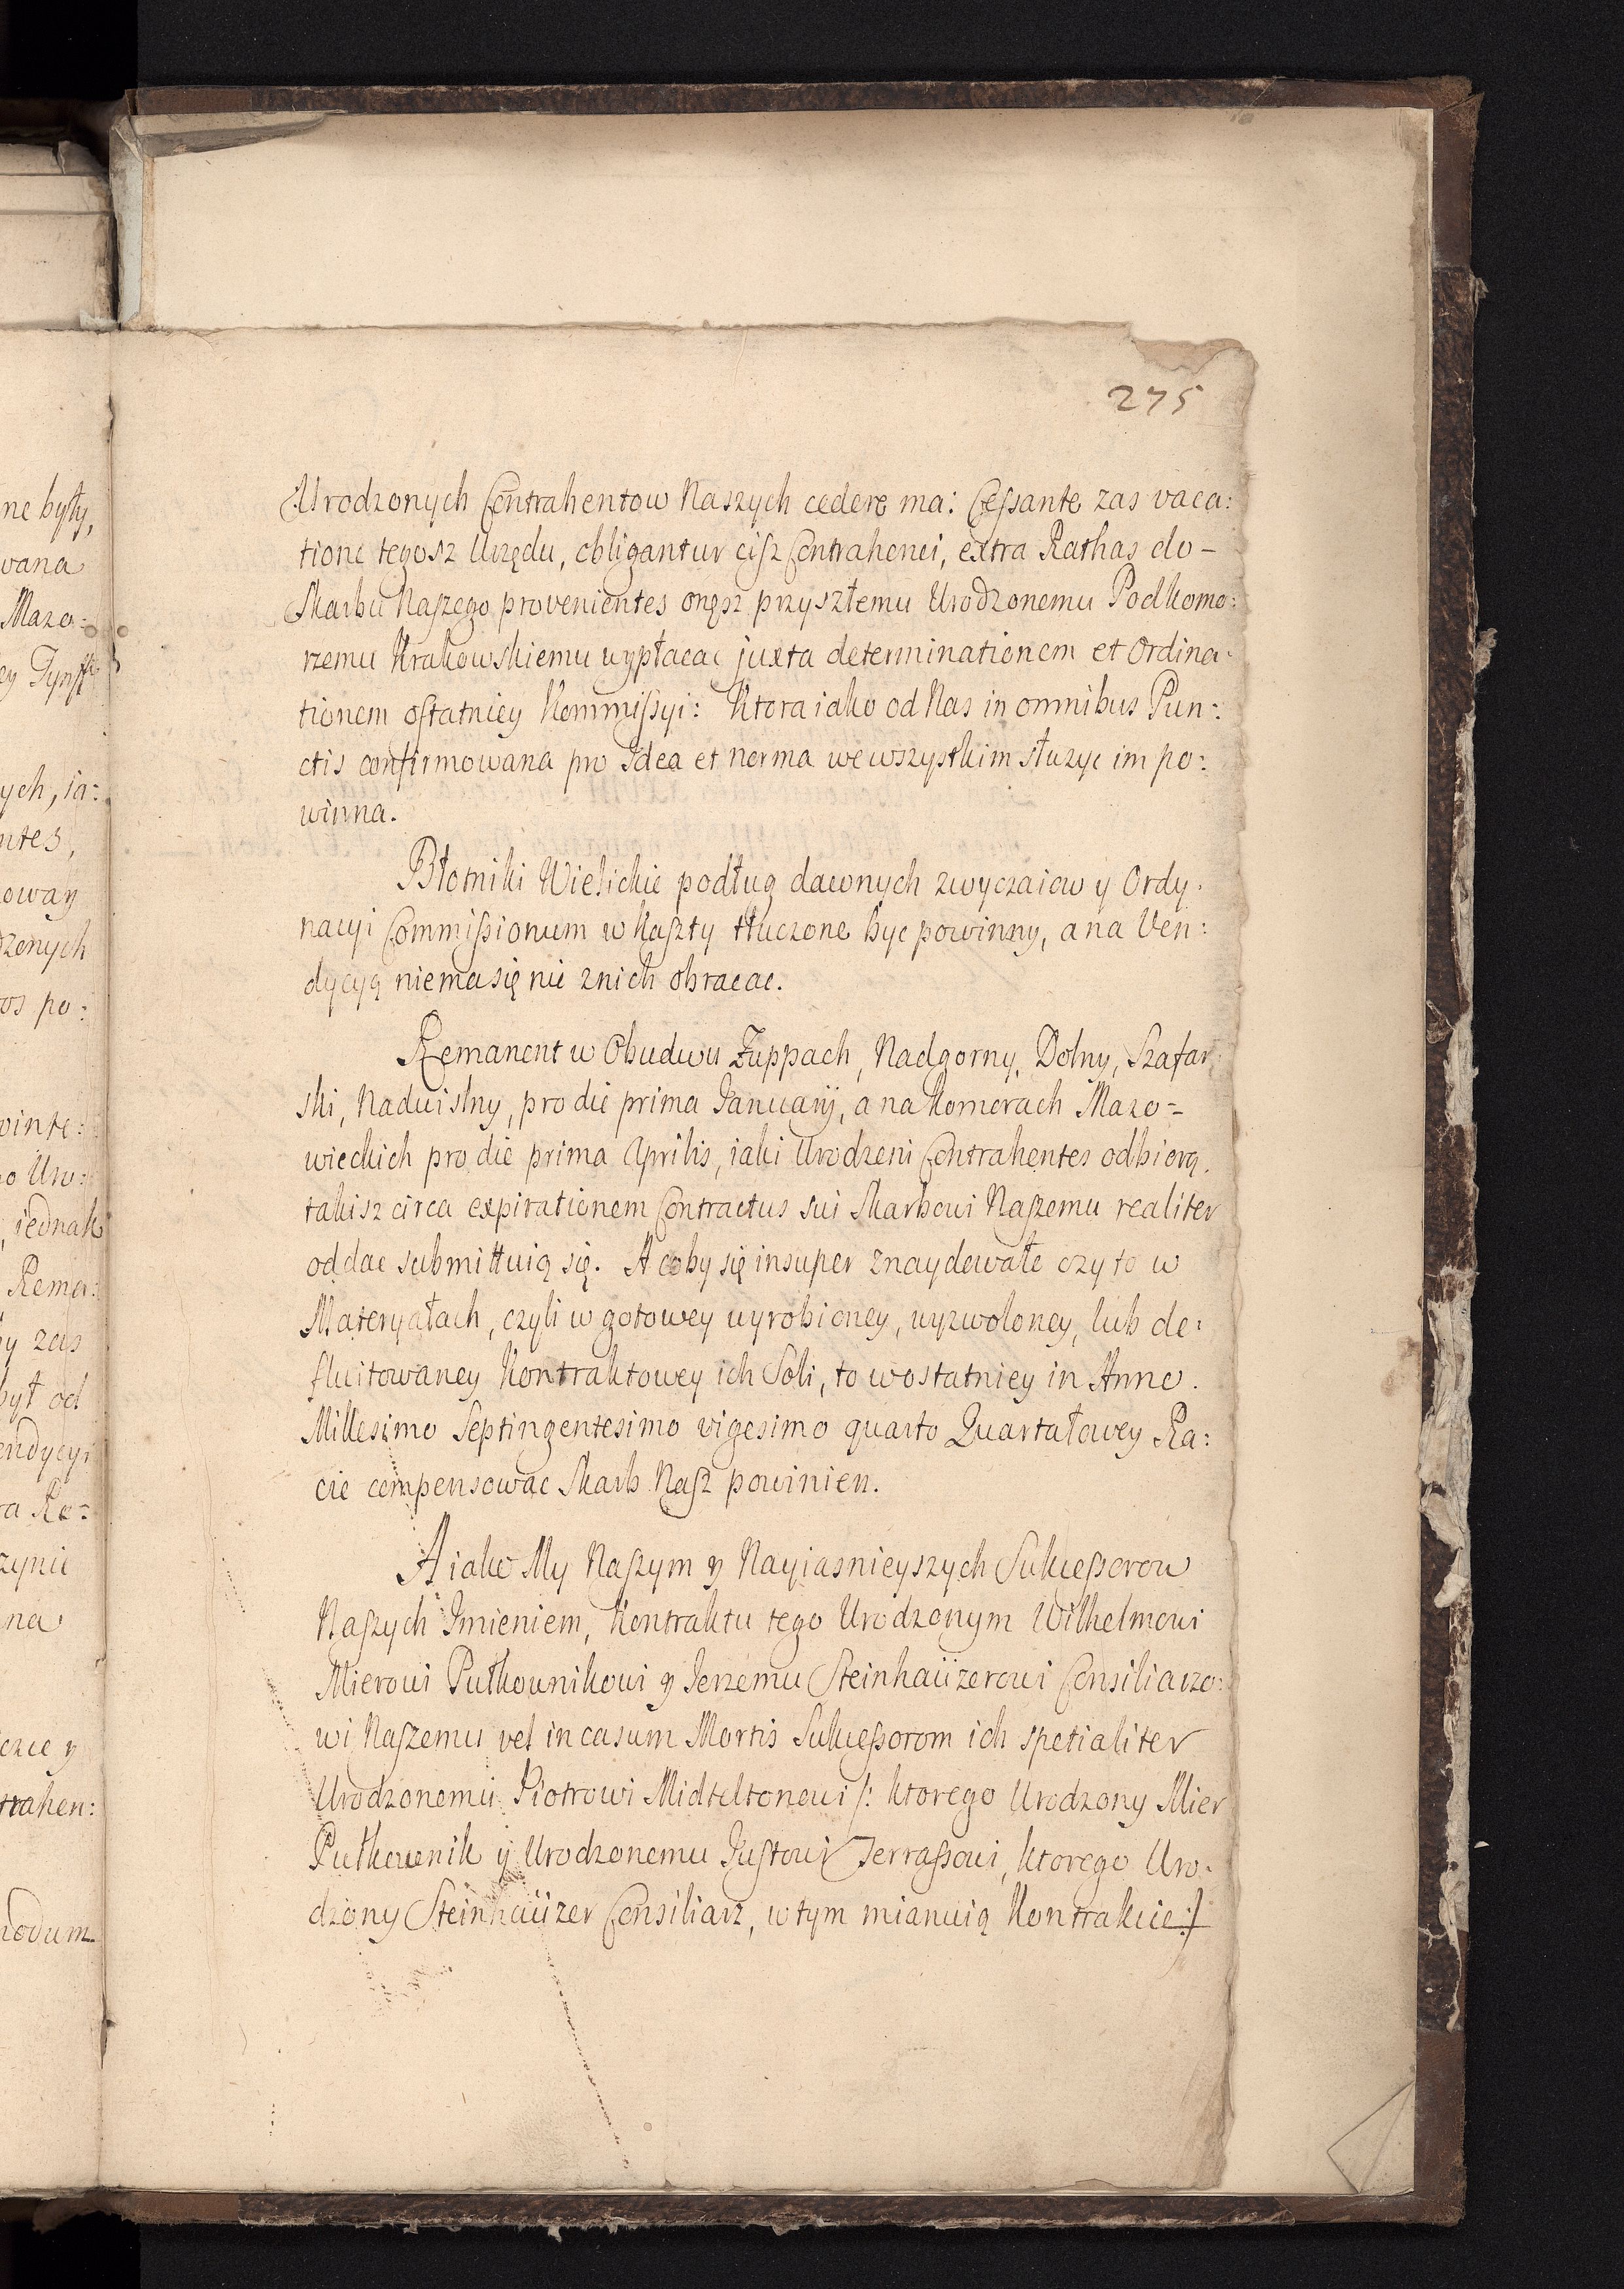 275
Urodzonych Contrahentow Naszych cedere ma: Cessante zas vaca:
tione tegosz Urzędu, obligantur cisz Contrahenci, extra Rathas do-
Skarbu Naszego provenientes onąsz przyszłemu Urodzonemu Podkomo:
rzemu Krakowskiemu wypłacac juxta determinationem et Ordina:
tionem ostatniey Kommissyi: Ktora iako od Nas in omnibus Pun:
ctis confirmowana pro Idea et norma we wszystkim słuzyc im po:
winna.
Błotniki Wielickie podług dawnych zwyczaiow y Ordy:
nacyi Commissionum w Kaszty tłuczone byc powinny, a na Ven:
dycyą niema się nic znich obracac.
Remanent w Obudwu Zuppach, Nadgorny, Dolny, Szafar:
ski, Nadwislny, pro die prima Januarij, a na Komorach Mazo-
wieckich pro die prima Aprilis, iaki Urodzeni Contrahentes odbiorą,
takisz circa expirationem Contractus sui Skarbowi Naszemu realiter
oddac submittuią się. A coby się insuper znaydowało czy to w
Materyałach, czyli w gotowey wyrobioney, wyzwoloney, lub de:
fluitowaney Kontraktowey ich Soli, to w ostatniey in Anno.
Millesimo Septingentesimo vigesimo quarto Quartałowey Ra:
cie compensowac Skarb Nasz powinien.
A iako My Naszym y Nayiasnieyszych Sukcessorow
Naszych Imieniem, Kontraktu tego Urodzonym Wilhelmowi
Mierowi Pułkownikowi y Jerzemu Steinhaüzerowi Consiliarzo:
wi Naszemu vel in casum Mortis Sukcessorom ich spetialiter
Urodzonemu Piotrowi Midteltonowi /: ktorego Urodzony Mier
Pułkownik ÿ Urodzonemu Justowi Jerrassowi, ktorego Uro:
dzony Steinhaüzer Consiliarz, w tym mianuią Kontrakcie:/
ne były,
wana
Mazo:
ych, ia:
ntes,
oway
dzonych
os po:
winte:
o Uro:
, iednak
Rema:
y zas
był od
endycyi
ra Ra:
zynie
na
trahen:
modum